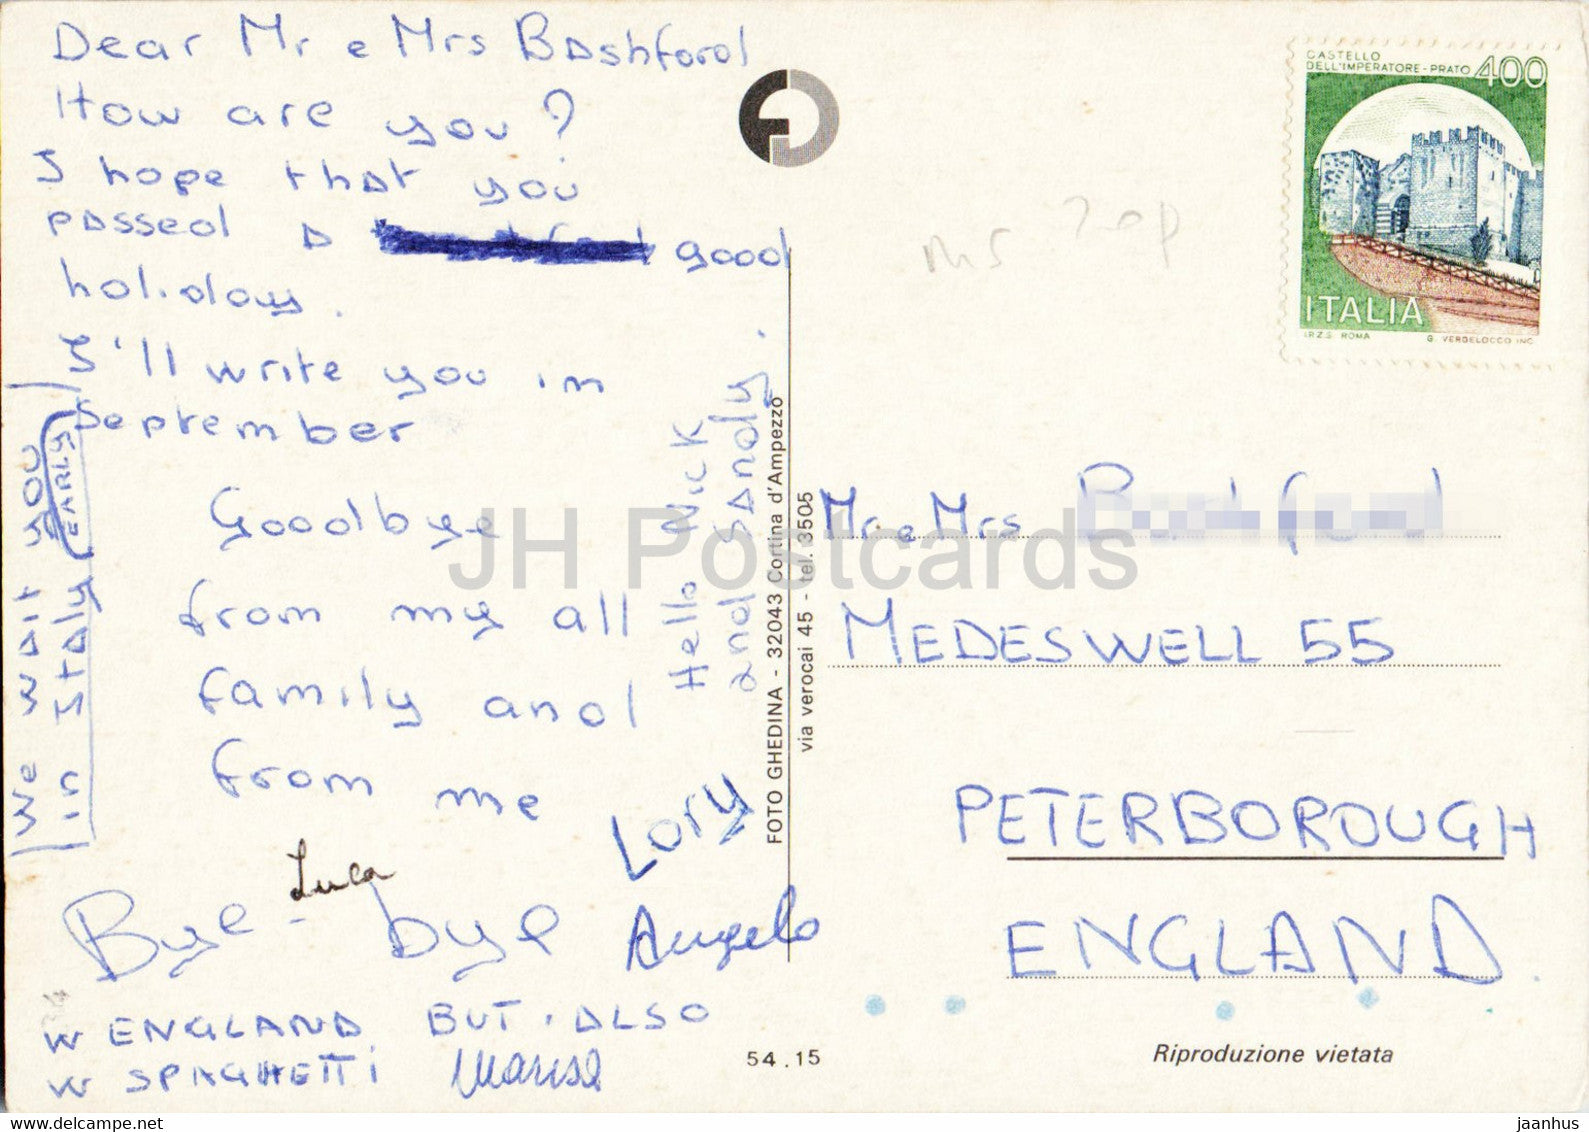 Dear Mr e Mrs Bashford
How are you?
I hope that you
passed a good
holiday.
I'll write you in
September
Goodbye
from my all
family and
from me
Lory
Luca
Bye - bye
Angelo
W ENGLAND BUT ALSO
W SPAGHETTI Marisa
We wait you
in Italy EARLY
Hello Nick
and Sandy.
FOTO GHEDINA - 32043 Cortina d'Ampezzo
via verocai 45 - tel. 3505
54.15
CASTELLO
DELL'IMPERATORE-PRATO 400
ITALIA
I.P.Z.S. ROMA G. VERDELOCCO INC.
20p
Mr e Mrs
MEDESWELL 55
PETERBOROUGH
ENGLAND.
Riproduzione vietata
JH Postcards
www.delcampe.net
jaanhus